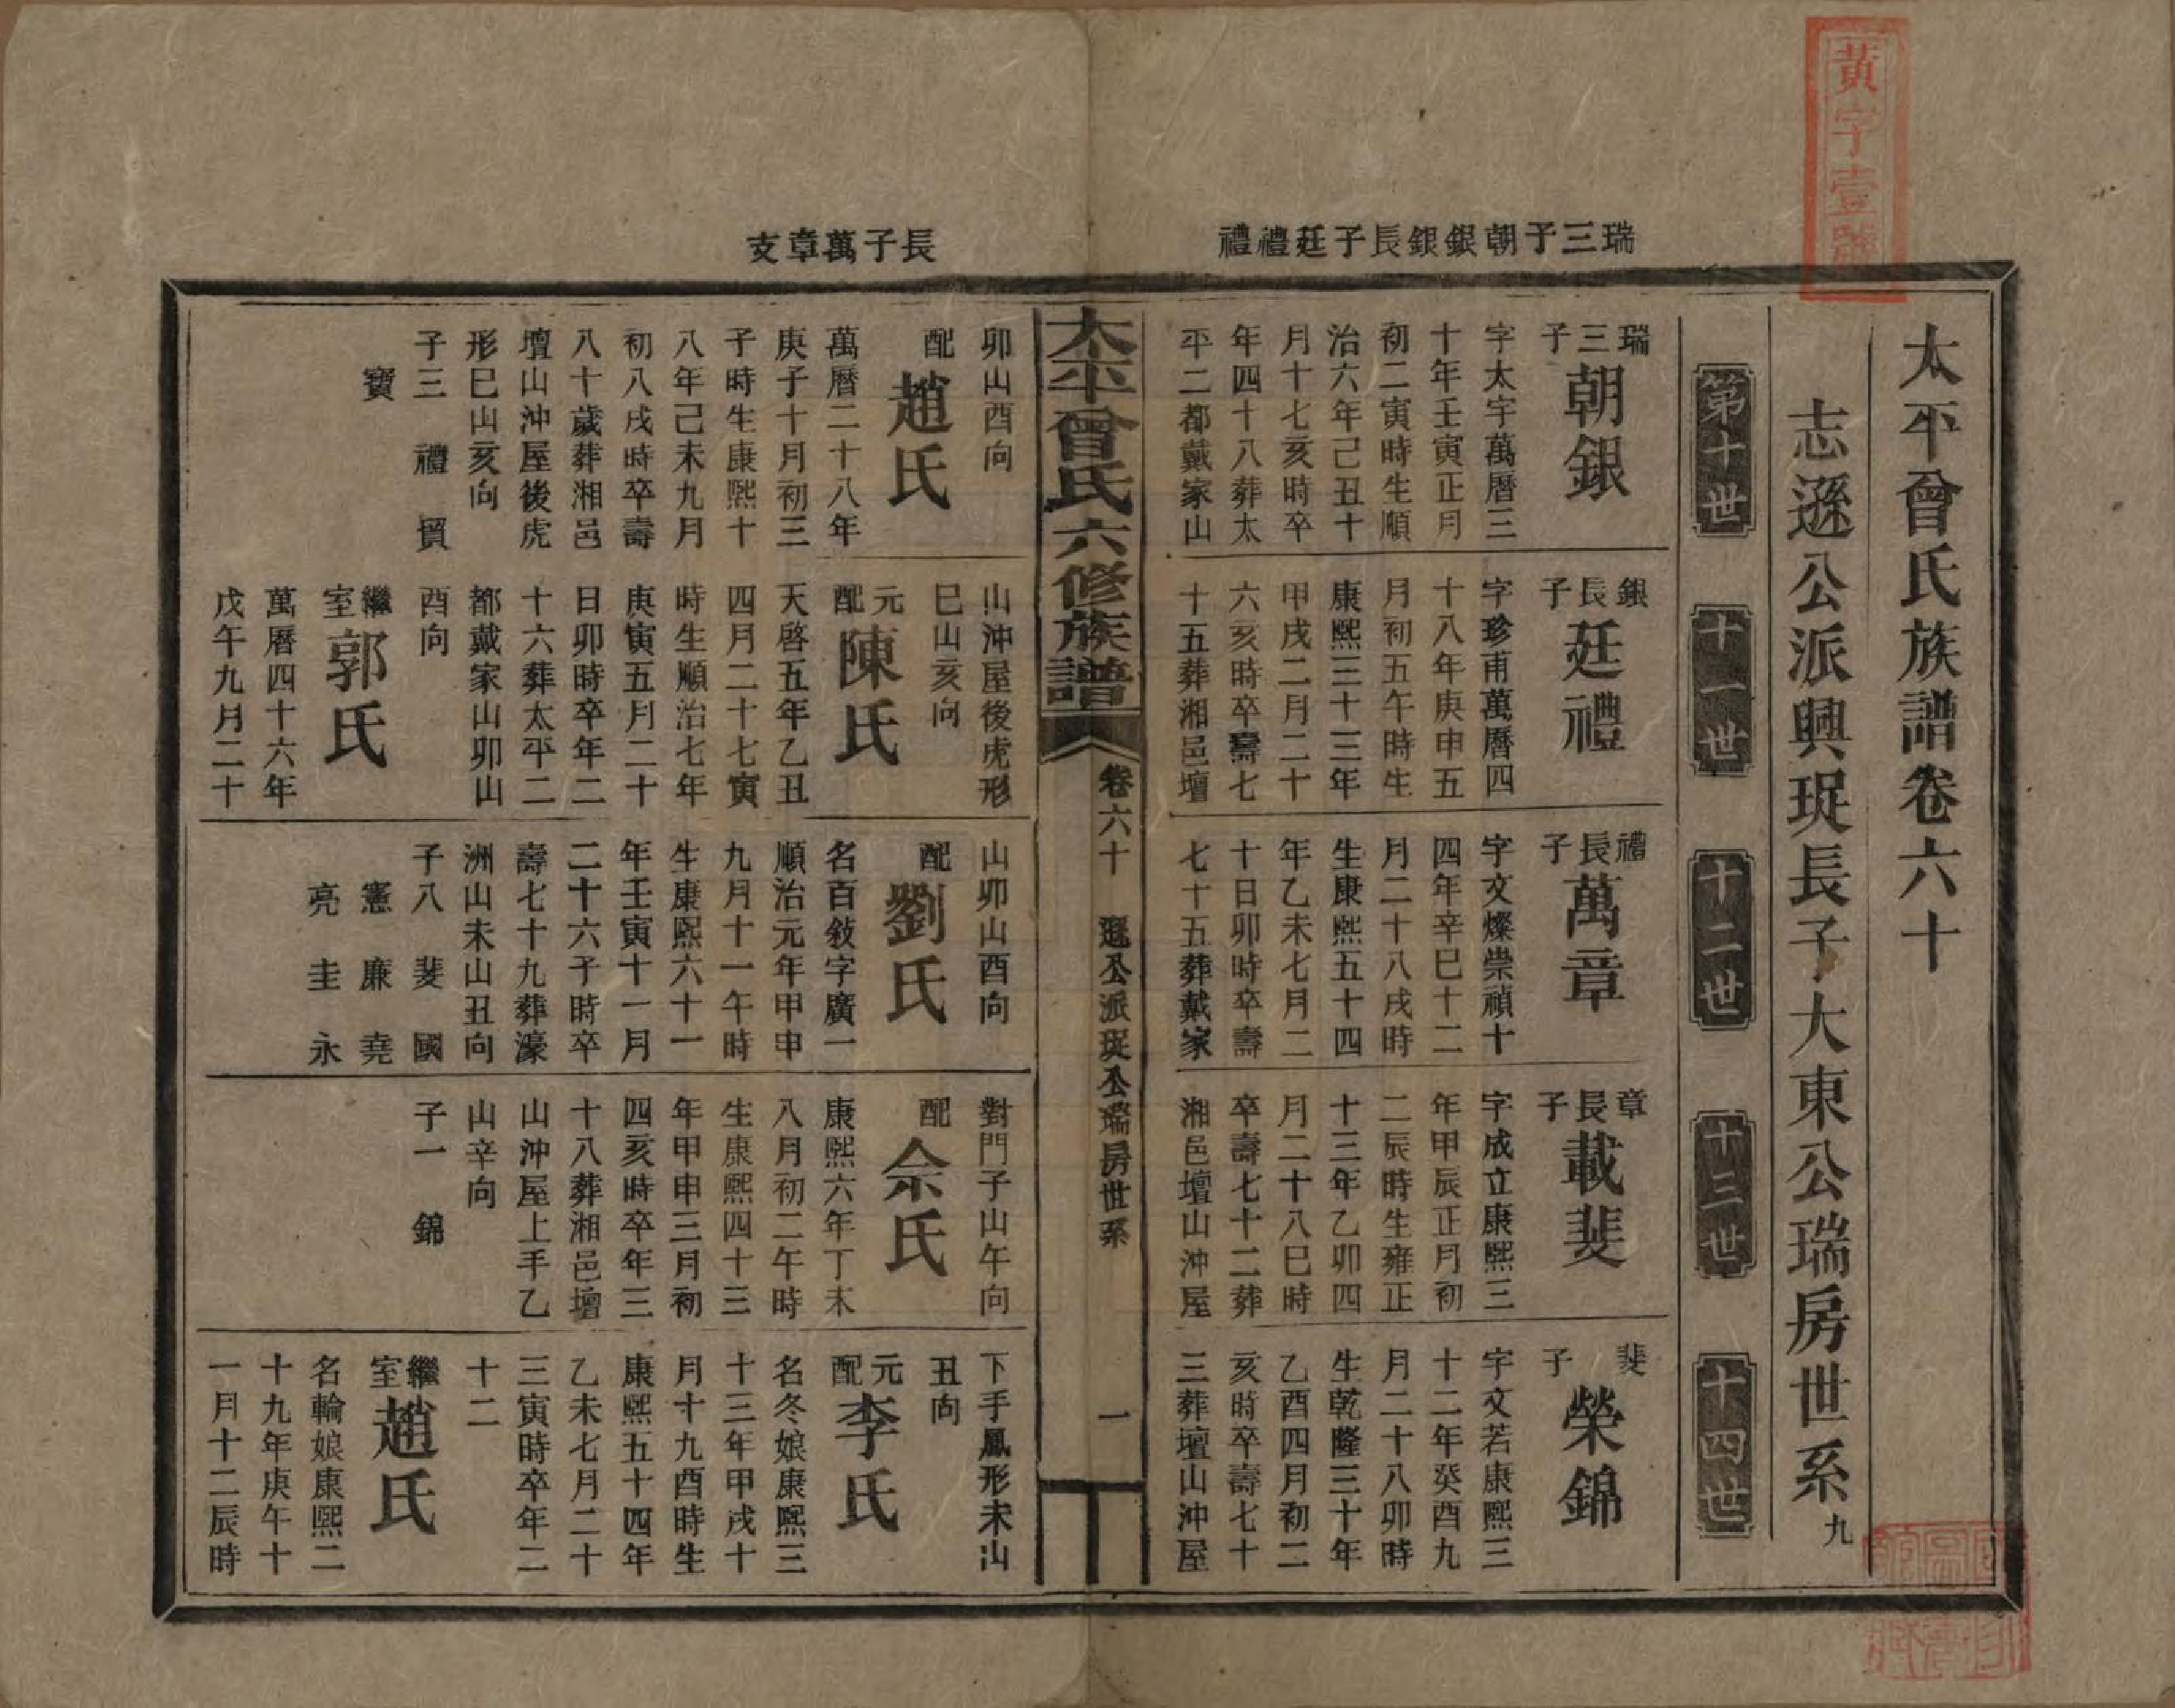 黃字壹號
瑞三子朝銀銀長子廷禮禮
長子萬章支
太平曾氏族譜卷六十
志遜公派興珽長子大東公瑞房世系九
第十世
十一世
十二世
十三世
十四世
瑞三子
朝銀
字太宇萬曆三
十年壬寅正月
初二寅時生順
治六年己丑十
月十七亥時卒
年四十八葬太
平二都戴家山
卯山酉向
配
趙氏
萬曆二十八年
庚子十月初三
子時生康熙十
八年己未九月
初八戌時卒壽
八十歲葬湘邑
壇山沖屋後虎
形巳山亥向
子三 禮 貿
寶
銀長子
廷禮
字珍甫萬曆四
十八年庚申五
月初五午時生
康熙三十三年
甲戌二月二十
六亥時卒壽七
十五葬湘邑壇
山沖屋後虎形
巳山亥向
元配
陳氏
天啓五年乙丑
四月二十七寅
時生順治七年
庚寅五月二十
日卯時卒年二
十六葬太平二
都戴家山卯山
酉向
繼室
郭氏
萬曆四十六年
戊午九月二十
禮長子
萬章
字文燦崇禎十
四年辛巳十二
月二十八戌時
生康熙五十四
年乙未七月二
十日卯時卒壽
七十五葬戴家
山卯山酉向
配
劉氏
名百敍字廣一
順治元年甲申
九月十一午時
生康熙六十一
年壬寅十一月
二十六子時卒
壽七十九葬濠
洲山未山丑向
子八 斐 國
憲 廉 堯
亮 圭 永
章長子
載斐
字成立康熙三
年甲辰正月初
二辰時生雍正
十三年乙卯四
月二十八巳時
卒壽七十二葬
湘邑壇山沖屋
對門子山午向
配
佘氏
康熙六年丁未
八月初二午時
生康熙四十三
年甲申三月初
四亥時卒年三
十八葬湘邑壇
山沖屋上手乙
山辛向
子一 錦
斐子
榮錦
字文若康熙三
十二年癸酉九
月二十八卯時
生乾隆三十年
乙酉四月初二
亥時卒壽七十
三葬壇山沖屋
下手鳳形未山
丑向
元配
李氏
名冬娘康熙三
十三年甲戌十
月十九酉時生
康熙五十四年
乙未七月二十
三寅時卒年二
十二
繼室
趙氏
名輪娘康熙二
十九年庚午十
一月十二辰時
太平曾氏六修族譜
卷六十 遜公派珽公瑞房世系 一